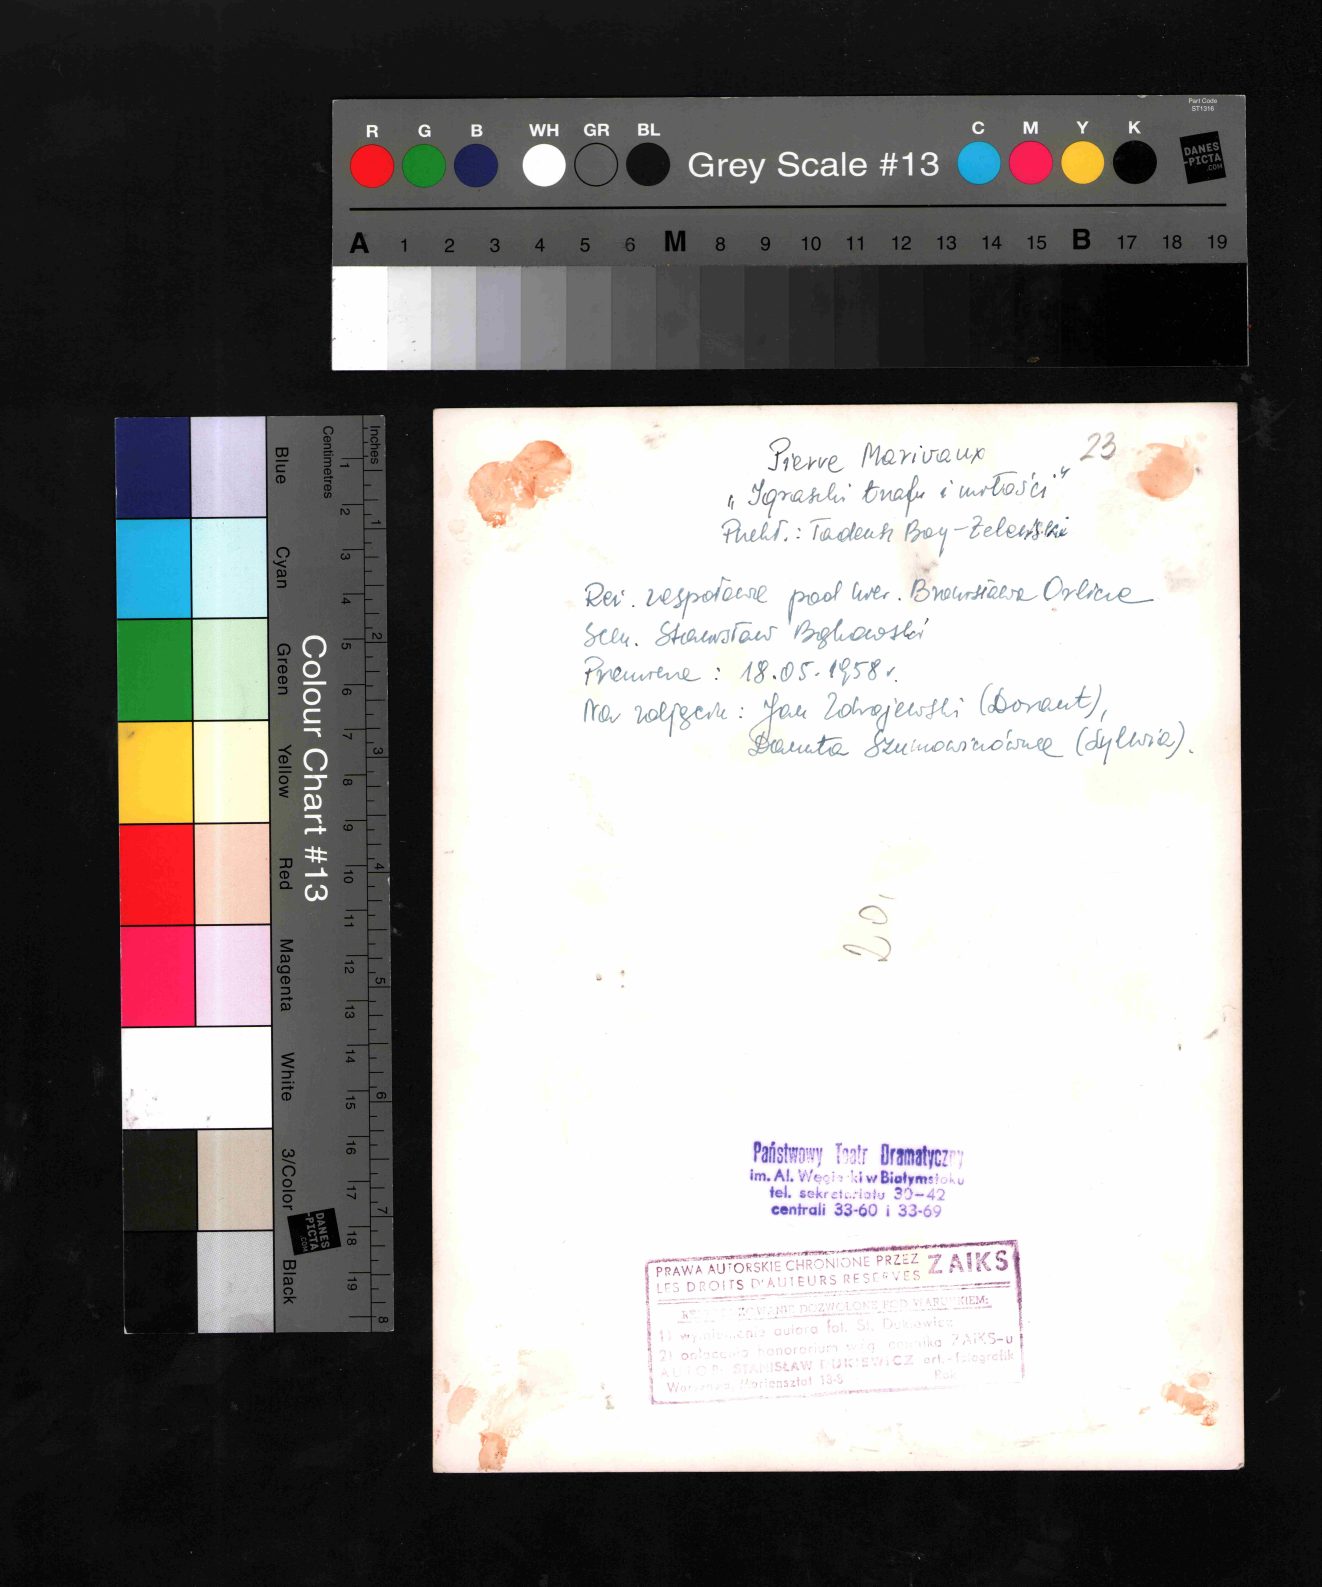 Part Code
ST1316
R G B WH GR BL Grey Scale #13 C M Y K
DANES
-PICTA
.COM
A 1 2 3 4 5 6 M 8 9 10 11 12 13 14 15 B 17 18 19
Colour Chart #13
Blue Cyan Green Yellow Red Magenta White 3/Color Black
Centimetres
1 2 3 4 5 6 7 8 9 10 11 12 13 14 15 16 17 18 19
Inches
1 2 3 4 5 6 7 8
DANES
-PICTA
.COM
23
Pierre Marivaux
„Igraszki trafu i miłości"
Przekł.: Tadeusz Boy-Żeleński
Reż. zespołowa pod kier. Bronisława Orlicza
Scen. Stanisław Bąkowski
Premiera: 18.05.1958 r.
Na zdjęciu: Jan Zdrojewski (Dorant),
Danuta Szumowiczówna (Sylwia).
20,
Państwowy Teatr Dramatyczny
im. Al. Węgierki w Białymstoku
tel. sekretariatu 30-42
centrali 33-60 i 33-69
PRAWA AUTORSKIE CHRONIONE PRZEZ ZAIKS
LES DROITS D'AUTEURS RESERVES
DOZWOLONE POD WARUNKIEM:
1) wymienienia autora fot. St. Dukiewicz
2) opłacenia honorarium wg. cennika ZAIKS-u
AUTOR: STANISŁAW DUKIEWICZ art.-fotografik
Warszawa, Mariensztat 13-8